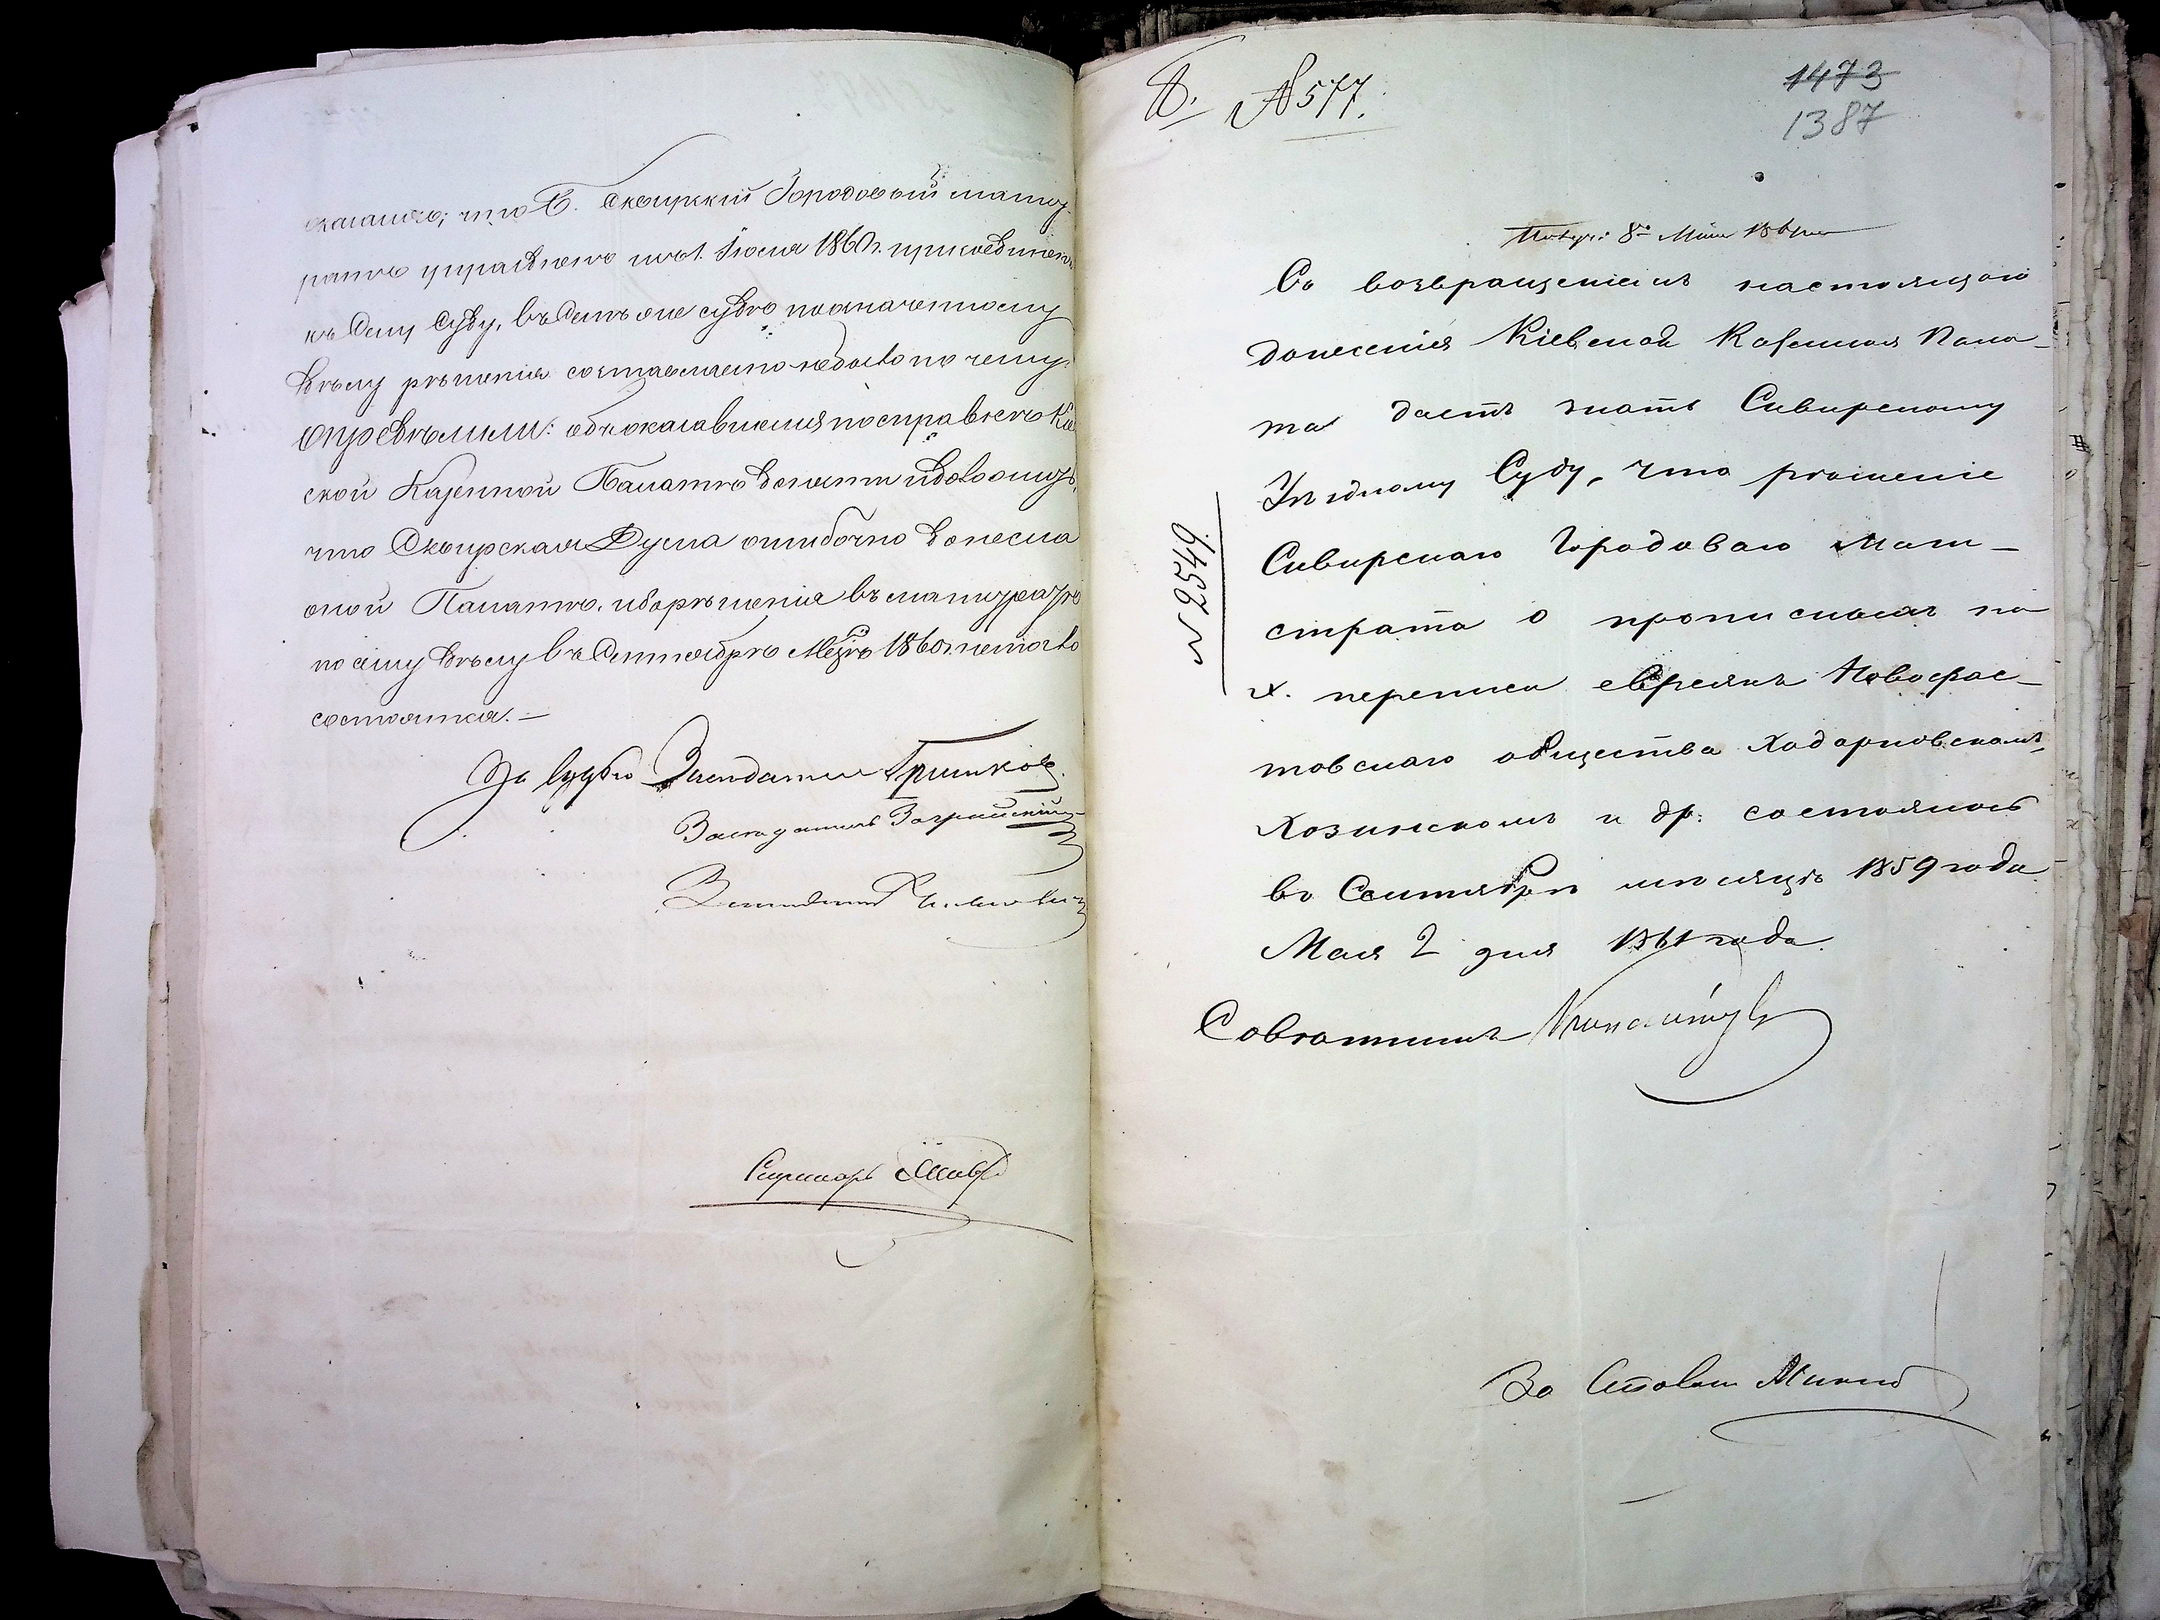 оказалось, что б. Сквирскій Городовый маги-
ратъ управленъ съ 1. Іюля 1860 г. присоединенъ
къ сему Суду, въ семъ же судѣ по означенному
дѣлу рѣшенія составляемо не было по чему,
Опредѣлили: объ оказавшемся по справкѣ Кіев
ской Казенной Палатѣ донести и доложить,
что Сквирская Дума ошибочно донесла
оной Палатѣ, ибо рѣшенія въ магистратѣ
по сему дѣлу въ Сентябрѣ М-цѣ 1860 г. не могло
состоятся. —
За Судью Засѣдатель Гришков
Засѣдатель
Засѣдатель
Секретарь
Б. № 577.
1473
1387
Получ: 8го Мая 1861 года
Съ возвращеніемъ настоящаго
донесенія Кіевская Казенная Пала-
та даетъ знать Сквирскому
Уѣздному Суду, что рѣшеніе
Сквирскаго Городоваго Маги-
страта о прописныхъ по
IX. переписи евреяхъ Новофас-
товскаго общества Ходорковскомъ,
Хозинскомъ и др: состоялось
въ Сентябрѣ мѣсяцѣ 1859 года.
Мая 2 дня 1861 года.
Совѣтникъ
№ 25549
За Столон